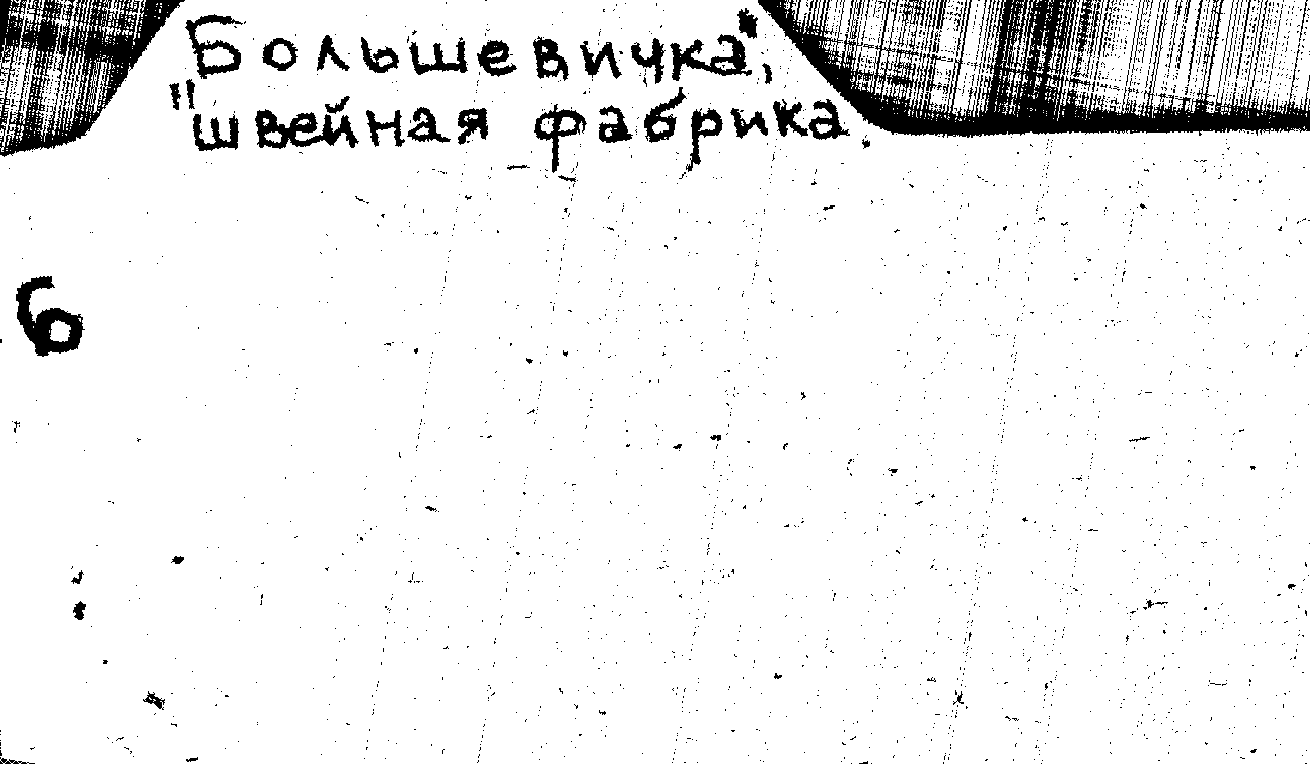 Большевичка",
"швейная фабрика.
6